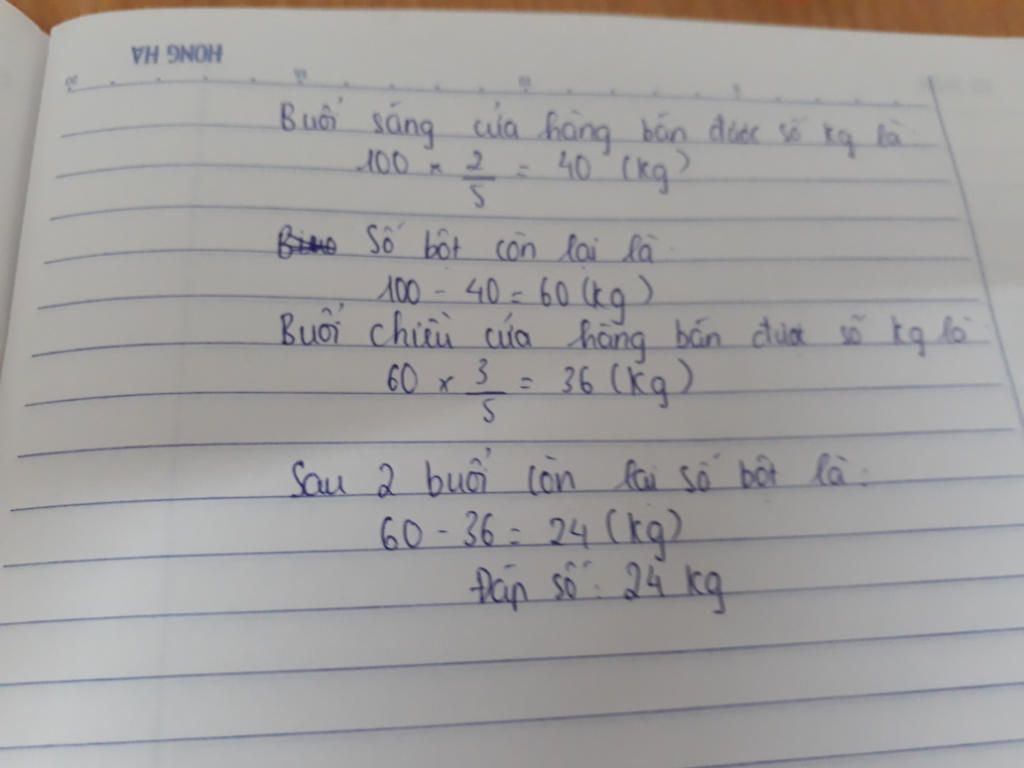 HONG HA
Buổi sáng cửa hàng bán được số kg là:
100 × 2/5 = 40 (kg)
Số bột còn lại là:
100 - 40 = 60 (kg)
Buổi chiều cửa hàng bán được số kg là:
60 × 3/5 = 36 (kg)
Sau 2 buổi còn lại số bột là:
60 - 36 = 24 (kg)
Đáp số: 24 kg